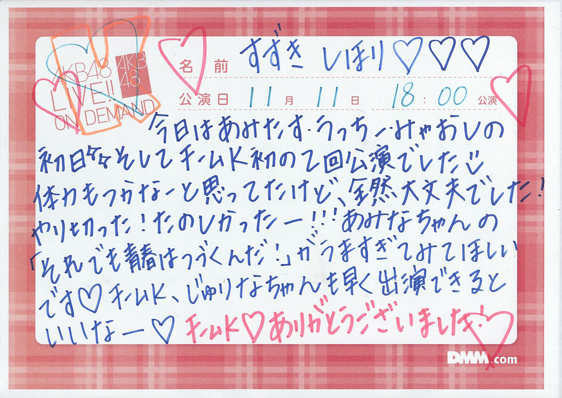 AKB48 AKB48
LIVE!!
ON DEMAND
名前 すずき しほり♡♡♡
公演日 11月 11日 18:00 公演
今日はあみたす.うっちーみゃおしの
初日々々そしてチームK初の2回公演でした
体力もつかなーと思ってたけど、全然大丈夫でした!
やり切った!たのしかったー!!!あみなちゃんの
「それでも青春はつづくんだ!」がうますぎてみてほしい
です♡チームK、じゅりなちゃんも早く出演できると
いいなー♡ チームK♡ありがとうございました!
DMM.com